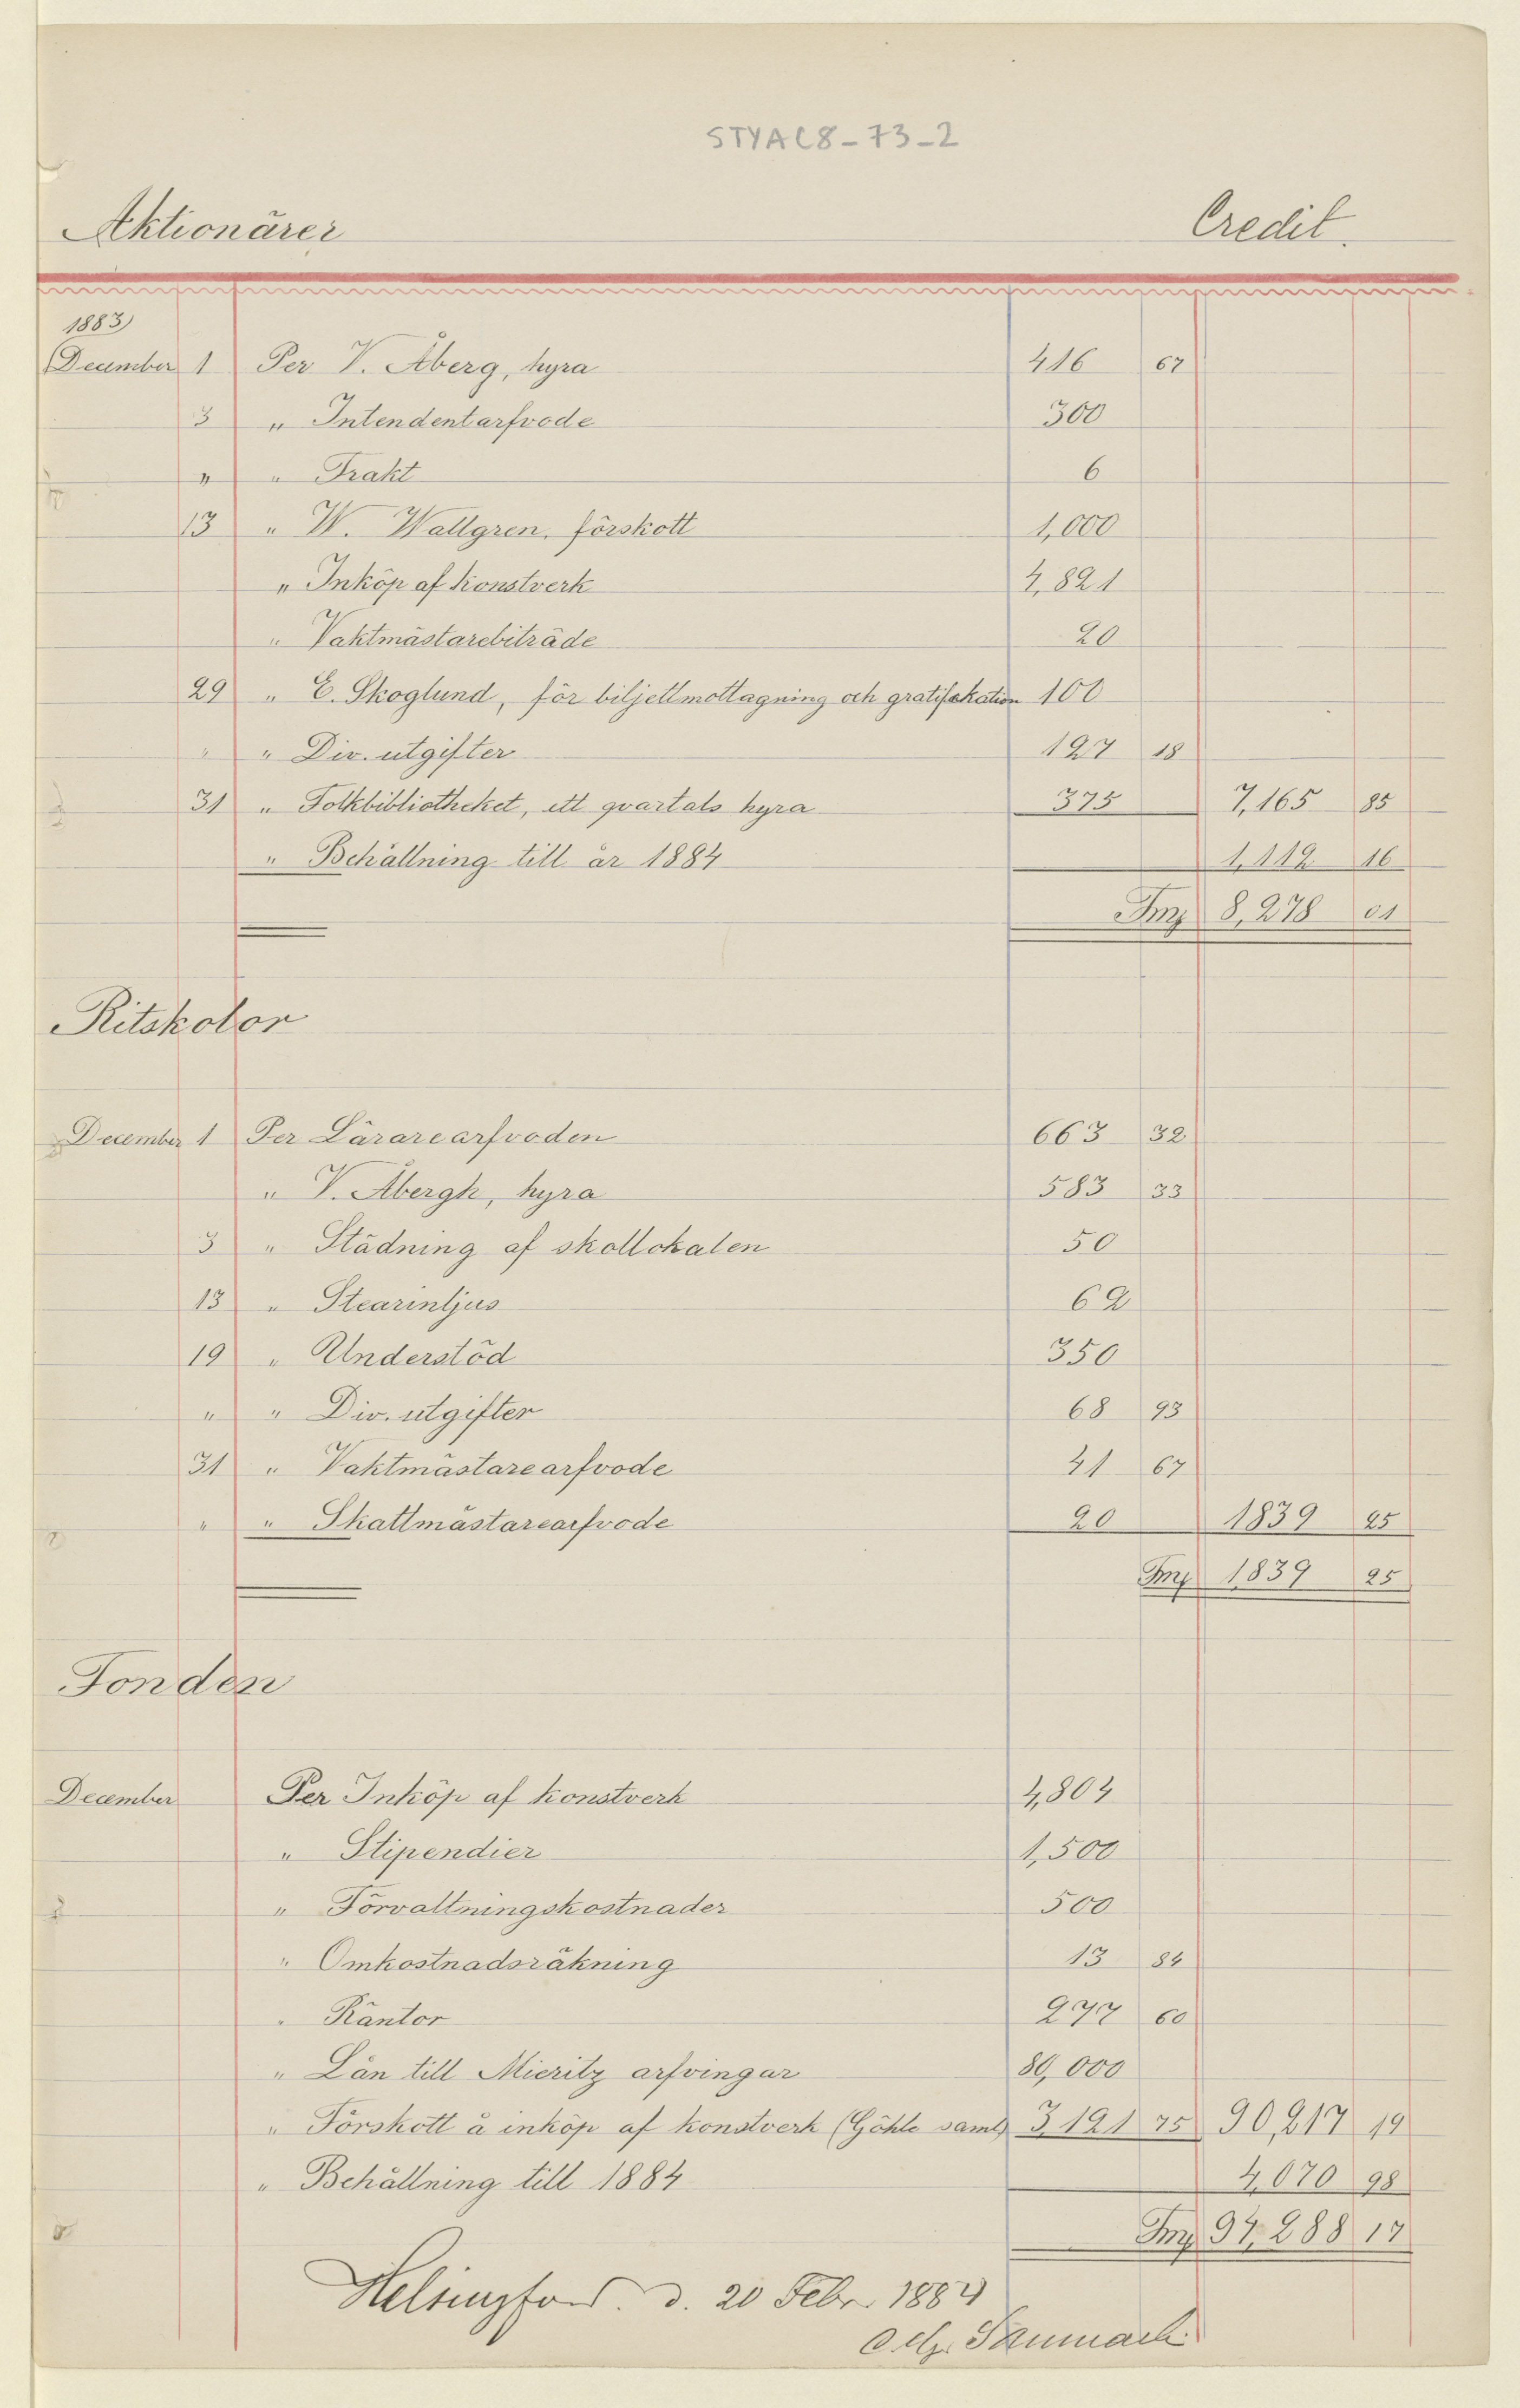 STYAC8-73-2
Aktionärer Credit.
1883
December 1 Per V. Åberg, hyra 416 67
3 " Intendentarfvode 300
" " Frakt 6
13 " W. Wallgren, förskott 1,000
" Inköp af konstverk 4,821
" Vaktmästarebiträde 20
29 " E. Skoglund, för biljettmottagning och gratifikation 100
" " Div. utgifter 127 18
31 " Folkbibliotheket, ett qvartals hyra 375 7,165 85
" Behållning till år 1884 1,112 16
Fmk 8,278 01
Ritskolor
December 1 Per Lärarearfvoden 663 32
" V. Åbergh, hyra 583 33
3 " Städning af skollokalen 50
13 " Stearinljus 62
19 " Understöd 350
" " Div. utgifter 68 93
31 " Vaktmästarearfvode 41 67
" " Skattmästarearfvode 20 1839 25
Fmk 1839 25
Fonden
December Per Inköp af konstverk 4,804
" Stipendier 1,500
" Förvaltningskostnader 500
" Omkostnadsräkning 13 84
" Räntor 277 60
" Lån till Mieritz arfvingar 80,000
" Förskott å inköp af konstverk (Göhle saml) 3,121 75 90,217 19
" Behållning till 1884 4,070 98
Fmk 94,288 17
Helsingfors. d. 20 Febr. 1884